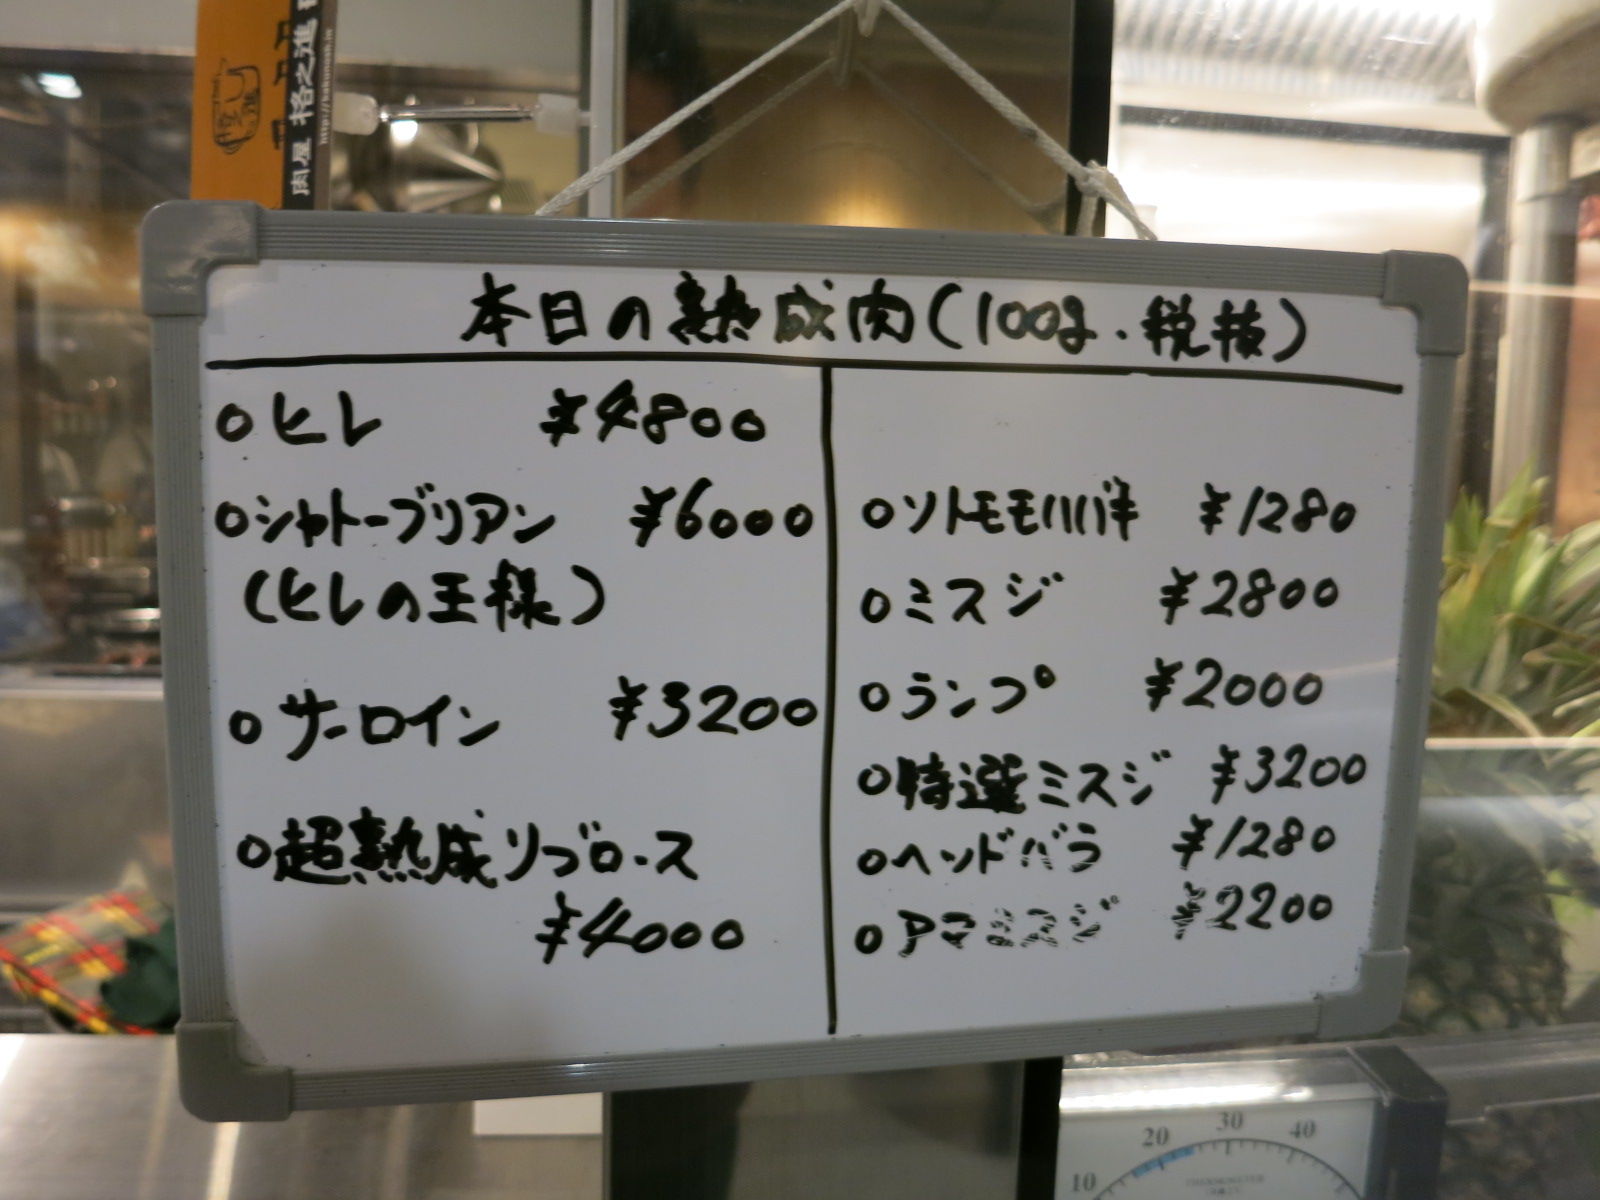 肉屋 格之進
http://kakunosh.in
本日の熟成肉(100g.税抜)
○ヒレ ¥4800
○シャトーブリアン ¥6000
(ヒレの王様)
○サーロイン ¥3200
○超熟成リブロース
¥4000
○ソトモモハバキ ¥1280
○ミスジ ¥2800
○ランプ ¥2000
○特選ミスジ ¥3200
○ヘッドバラ ¥1280
○アマミスジ ¥2200
10 20 30 40
THERMOMETER